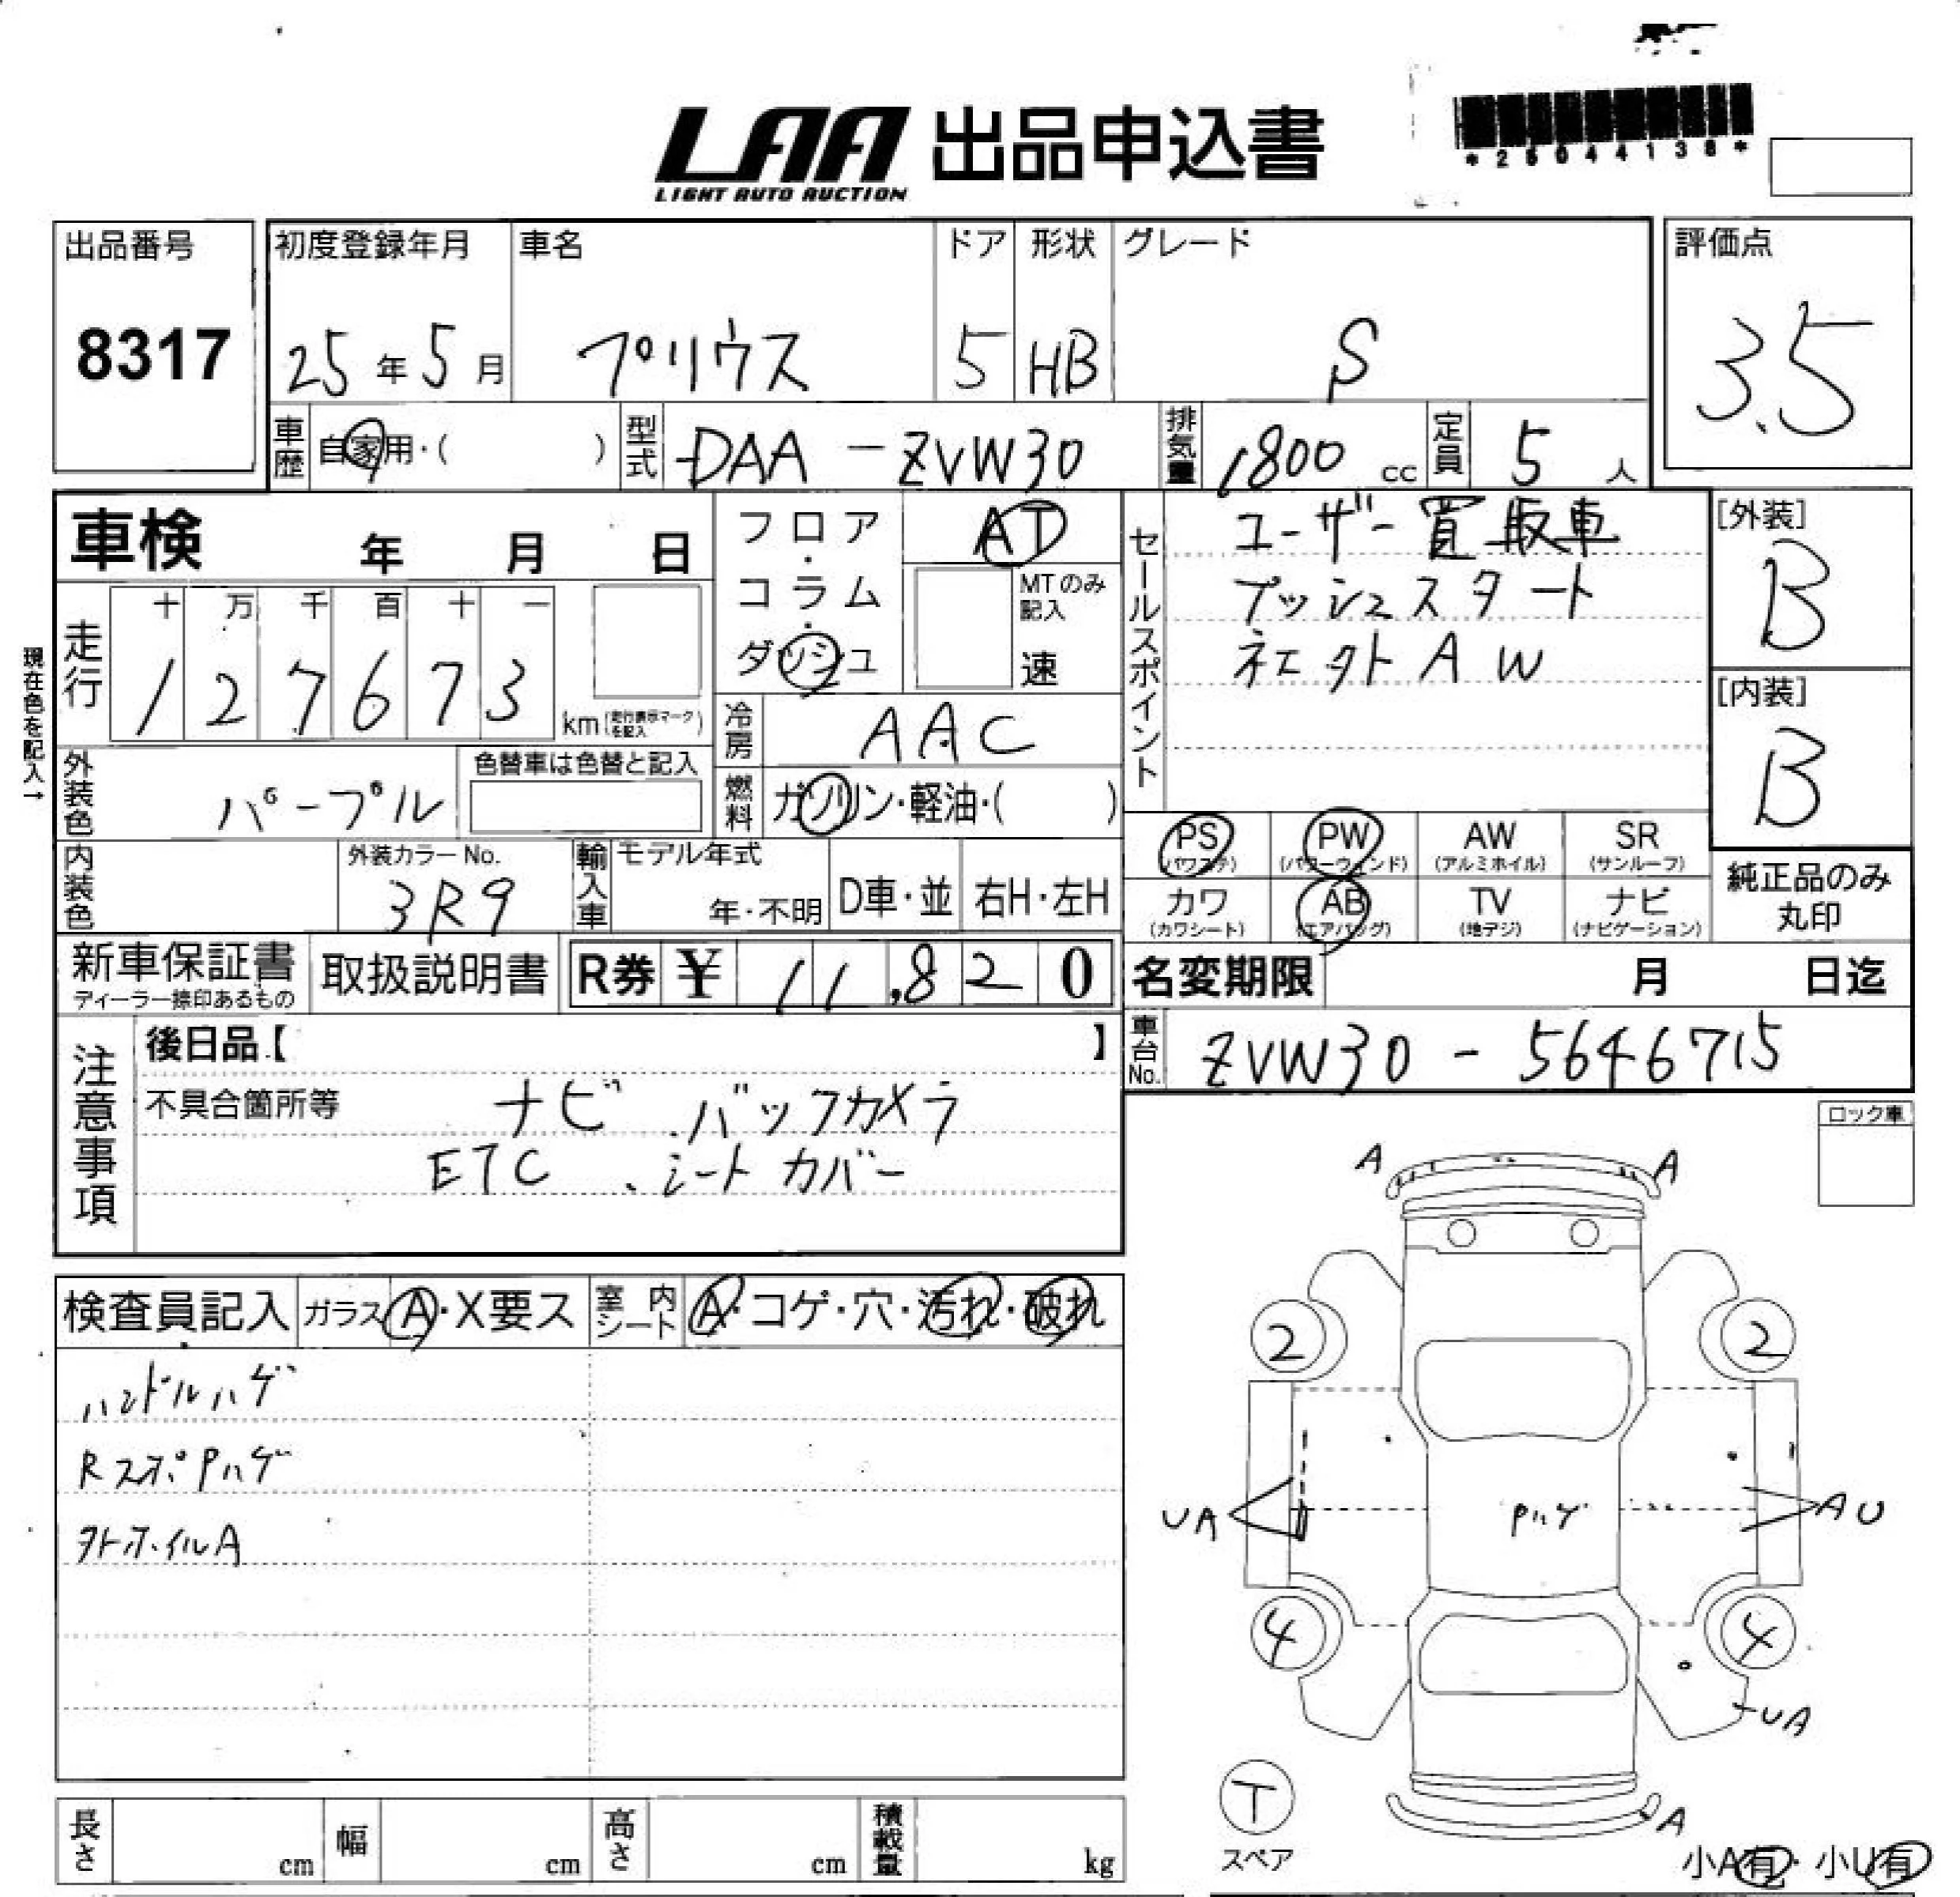 LAA 出品申込書
LIGHT AUTO AUCTION
*25044138*
出品番号 初度登録年月 車名 ドア 形状 グレード 評価点
8317 25年5月 プリウス 5 HB S 3.5
車歴 自家用・( ) 型式 DAA-ZVW30 排気量 1800 cc 定員 5 人
車検 年 月 日
フロア・コラム・ダッシュ AT
MTのみ記入 速
セールスポイント
ユーザー買取車
プッシュスタート
社外AW
[外装] B
[内装] B
現在色を記入→
走行 十 万 千 百 十 一
1 2 7 6 7 3 km(走行表示マークを記入)
冷房 AAC
外装色 パープル 色替車は色替と記入
燃料 ガソリン・軽油・( )
内装色 外装カラーNo. 3R9 輸入車 モデル年式 年・不明 D車・並 右H・左H
PS (パワステ) PW (パワーウィンド) AW (アルミホイル) SR (サンルーフ)
カワ (カワシート) AB (エアバッグ) TV (地デジ) ナビ (ナビゲーション)
純正品のみ丸印
新車保証書 ディーラー捺印あるもの 取扱説明書 R券 ¥ 11,820
名変期限 月 日迄
車台No. ZVW30-5646715
注意事項
後日品【 】
不具合箇所等 ナビ、バックカメラ
ETC、シートカバー
ロック車
検査員記入 ガラス A・X要ス 室内シート A・コゲ・穴・汚れ・破れ
ハンドルハゲ
RスポPハゲ
ホイルA
A A
2 2
UA Pハゲ AU
4 4
UA
T
スペア
A
小A有・小U有
長さ cm 幅 cm 高さ cm 積載量 kg